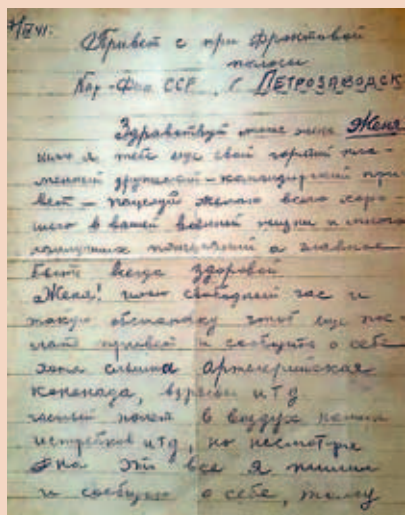 Привет с при фронтовой
полосы
Кар-Фин ССР, г. ПЕТРОЗАВОДСК
Здравствуй Женя
я тебе еще свой горячий пла-
менный дружеский-командирский при
вет- поцелуй желаю всего хоро-
шего в вашей военной жизни и много
а главное
быть всегда здоровой
Женя! свободный час и
такую обстановку чтоб еще пос-
лать привет и сообщить о себе
хотя слышна артилерийская
кононада, взрывы и т д
частый полет в воздух наших
истребков и т д, но несмотря
на эти все я пишу
и сообщаю о себе,